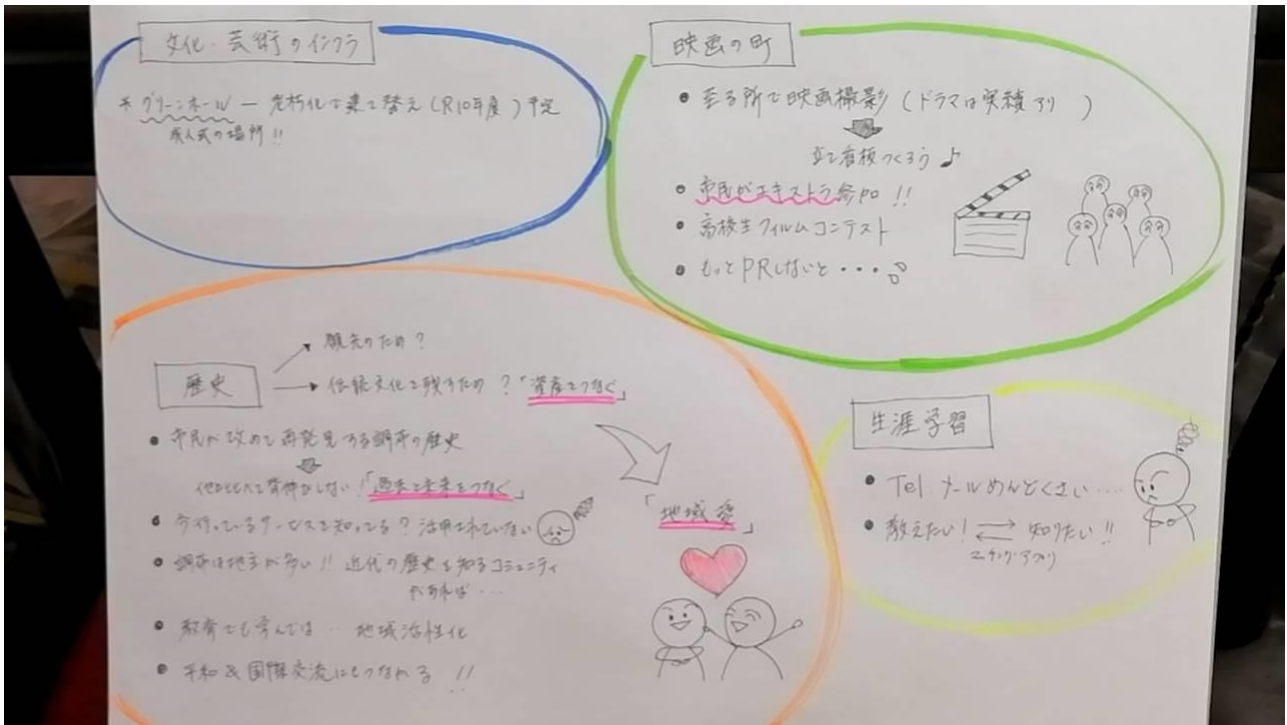 文化・芸術のインフラ
* グリーンホール ― 老朽化で建て替え(R10年度)予定
成人式の場所!!
映画の町
• 至る所で映画撮影(ドラマは実績アリ)
立て看板つくろう♪
• 市民がエキストラ参加!!
• 高校生フィルムコンテスト
• もっとPRしないと・・・
歴史
観光のため?
伝統文化を残すため?「資産をつなぐ」
• 市民が改めて再発見する調布の歴史
他と比べて背伸びしない!「過去と未来をつなぐ」
• 今行っているサービスを知ってる?活用されていない
• 調布は地主が多い!!近代の歴史を知るコミュニティ
があれば・・・
• 教育でも学んでは…地域活性化
• 平和&国際交流にもつながる!!
「地域愛」
生涯学習
• Tel.メールめんどくさい・・・・
• 教えたい!⇄知りたい!!
マチングアプリ